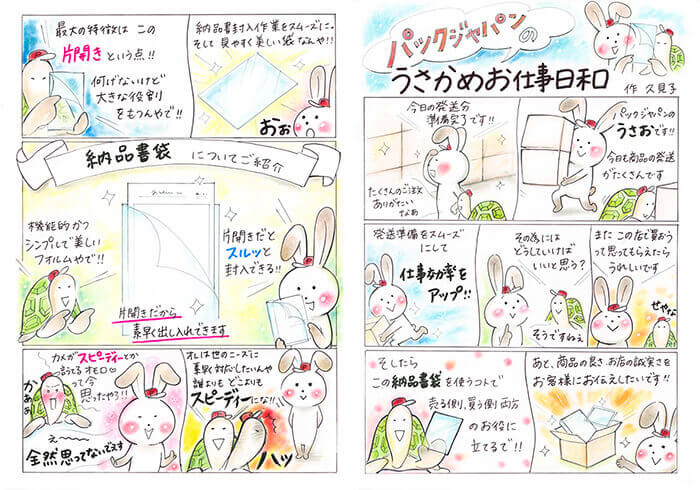 パックジャパンの
うさかめお仕事日和
作 久見子
パックジャパンの
うさおです!!
今日も商品の発送
がたくさんです
今日の発送分
準備完了です!!
たくさんのご注文
ありがたい
なぁ
また この店で買おう
って思ってもらえたら
うれしいです
せやな
その為には
どうしていけば
いいと思う?
そうですねぇ
発送準備をスムーズ
にして
仕事効率を
アップ!!
あと、商品の良さ、お店の誠実さを
お客様にお伝えしたいです!!
そしたら
この納品書袋を使うコトで
売る側、買う側 両方
のお役に
立てるで!!
納品書封入作業をスムーズに。
そして 見やすく美しい袋なんや!!
おぉ
最大の特徴は この
片開き という点!!
何げないけど
大きな役割
をもつんやで!!
納品書袋 についてご紹介
片開きだと
スルッと
封入できる!!
機能的かつ
シンプルで美しい
フォルムやで!!
片開きだから
素早く出し入れできます
オレは世のニーズに
素早く対応したいんや
誰よりも どこよりも
スピーディーにな!!
ハッ
カメがスピーディーとか
言ってる オモロ
って今
思ったやろ!!
かぁぁ
え〜
全然思ってないでえす